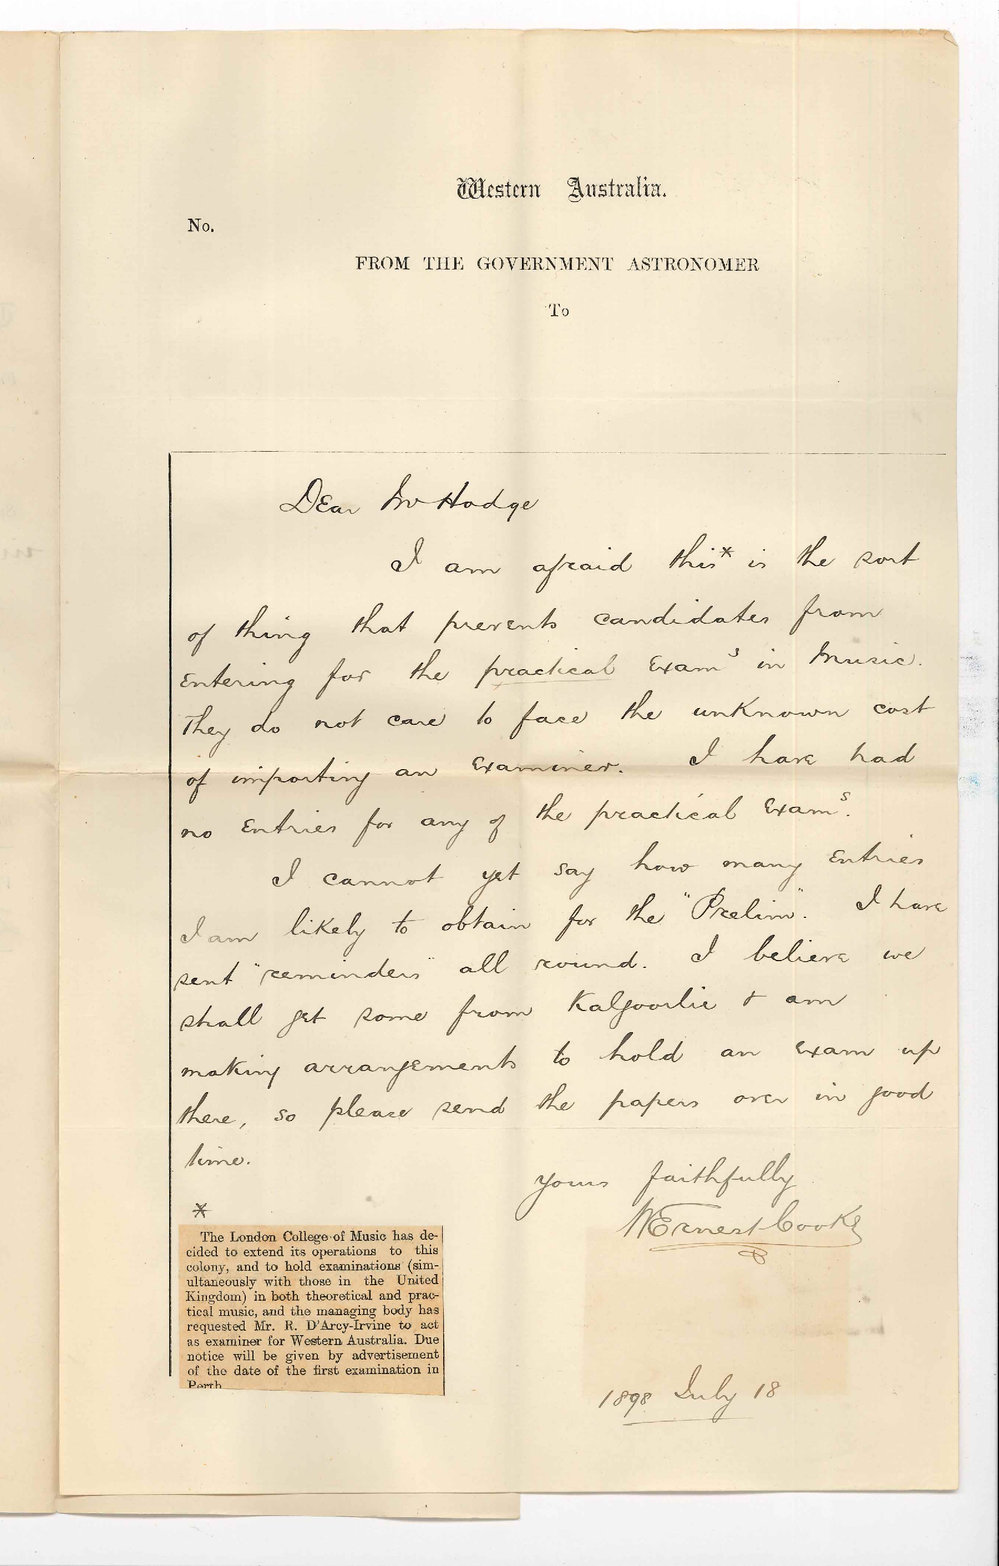 Western Australia.
No.
FROM THE GOVERNMENT ASTRONOMER
To
Dear Mr Hodge
I am afraid this* is the sort
of thing that prevents candidates from
entering for the practical Exams in Music.
They do not care to face the unknown cost
of importing an Examiner. I have had
no Entries for any of the practical Exams.
I cannot yet say how many Entries
I am likely to obtain for the "Prelim". I have
sent "reminders" all round. I believe we
shall get some from Kalgoorlie & am
making arrangements to hold an Exam up
there, so please send the papers over in good
time.
Yours faithfully
W Ernest Cooke
*
The London College of Music has de-
cided to extend its operations to this
colony, and to hold examinations (sim-
ultaneously with those in the United
Kingdom) in both theoretical and prac-
tical music, and the managing body has
requested Mr. R. D'Arcy-Irvine to act
as examiner for Western Australia. Due
notice will be given by advertisement
of the date of the first examination in
Perth
1898 July 18